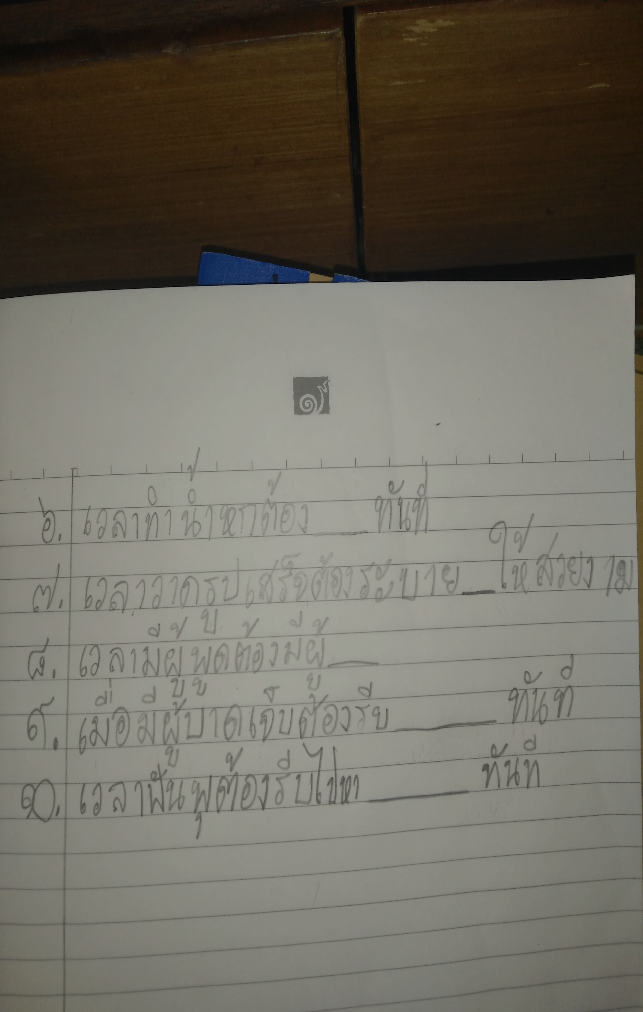 ๖. เวลาทำน้ำหกต้อง____ทันที
๗. เวลาวาดรูปเสร็จต้องระบาย__ให้สวยงาม
๘. เวลามีผู้พูดต้องมีผู้____
๙. เมื่อมีผู้บาดเจ็บต้องรีบ______ทันที
๑๐. เวลาฟันผุต้องรีบไปหา______ทันที